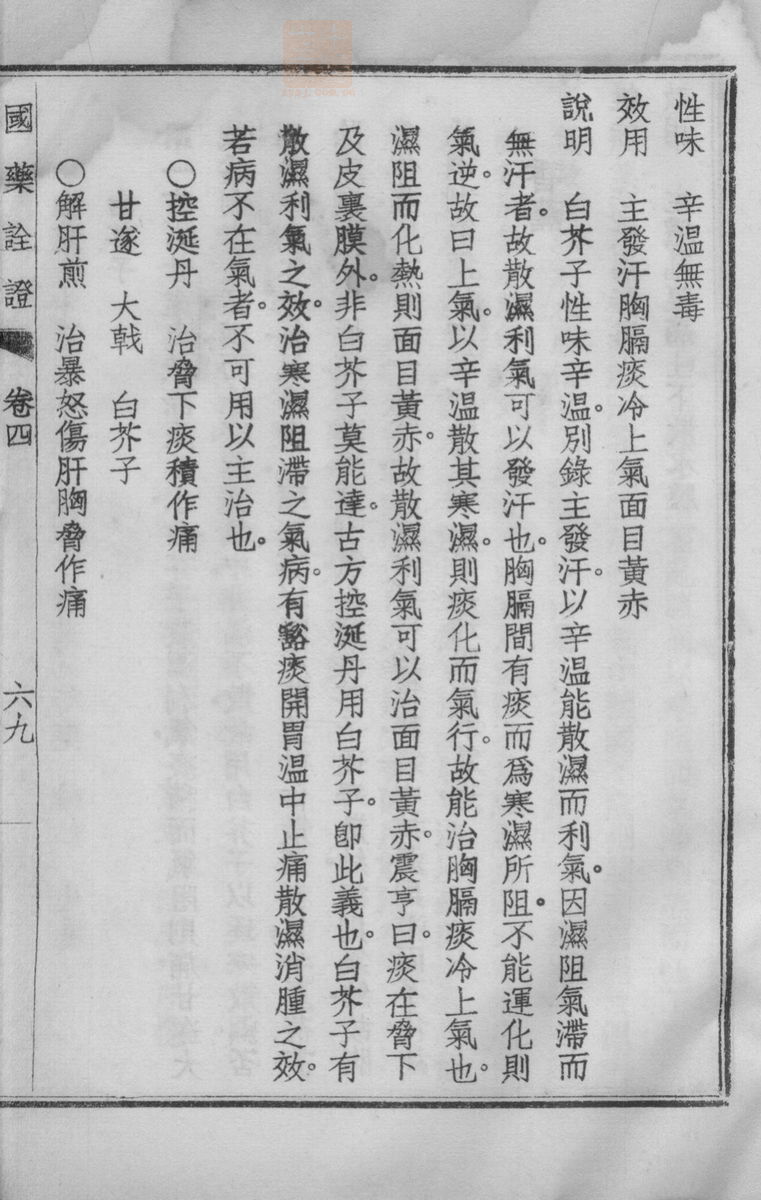 性味　辛溫無毒
效用　主發汗胸膈痰冷上氣面目黃赤
說明　白芥子性味辛溫。別錄主發汗。以辛溫能散濕而利氣。因濕阻氣滯而
無汗者。故散濕利氣可以發汗也。胸膈間有痰而爲寒濕所阻。不能運化則
氣逆。故曰上氣。以辛溫散其寒濕。則痰化而氣行。故能治胸膈痰冷上氣也。
濕阻而化熱則面目黃赤。故散濕利氣可以治面目黃赤。震亨曰。痰在脅下
及皮裏膜外。非白芥子莫能達。古方控涎丹用白芥子。卽此義也。白芥子有
散濕利氣之效。治寒濕阻滯之氣病。有豁痰開胃溫中止痛散濕消腫之效。
若病不在氣者。不可用以主治也。
〇控涎丹　治脅下痰積作痛
甘遂　大戟　白芥子
〇解肝煎　治暴怒傷肝胸脅作痛
國藥詮證　卷四　六九